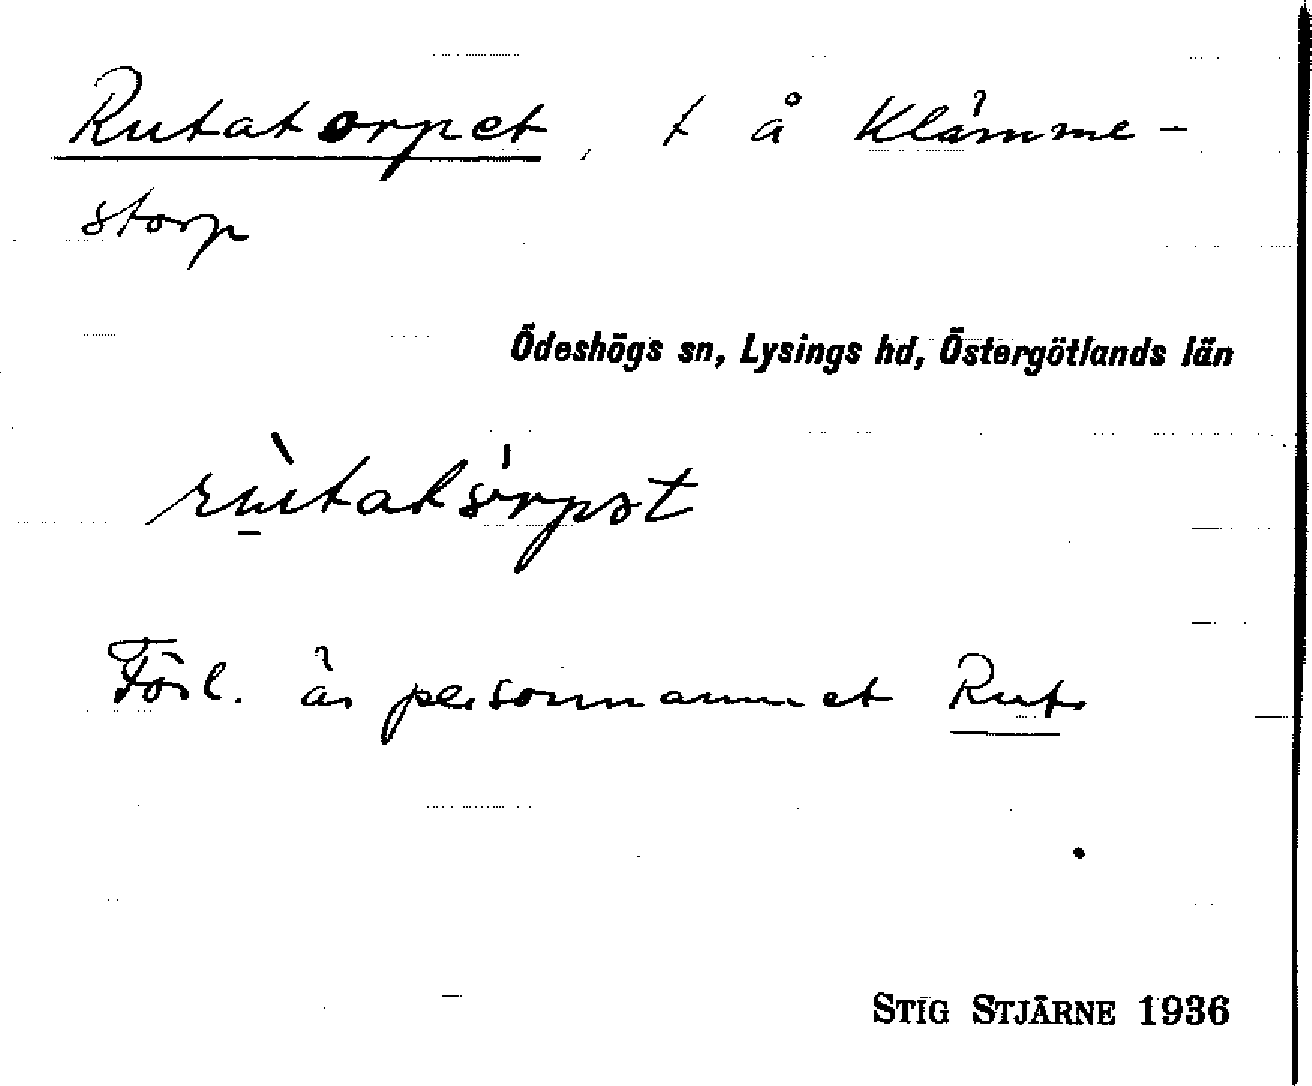 Rutatorpet, t å Klämme-
storp
Ödeshögs sn, Lysings hd, Östergötlands län
Förl. är personnamnet Rut.
STIG STJÄRNE 1936